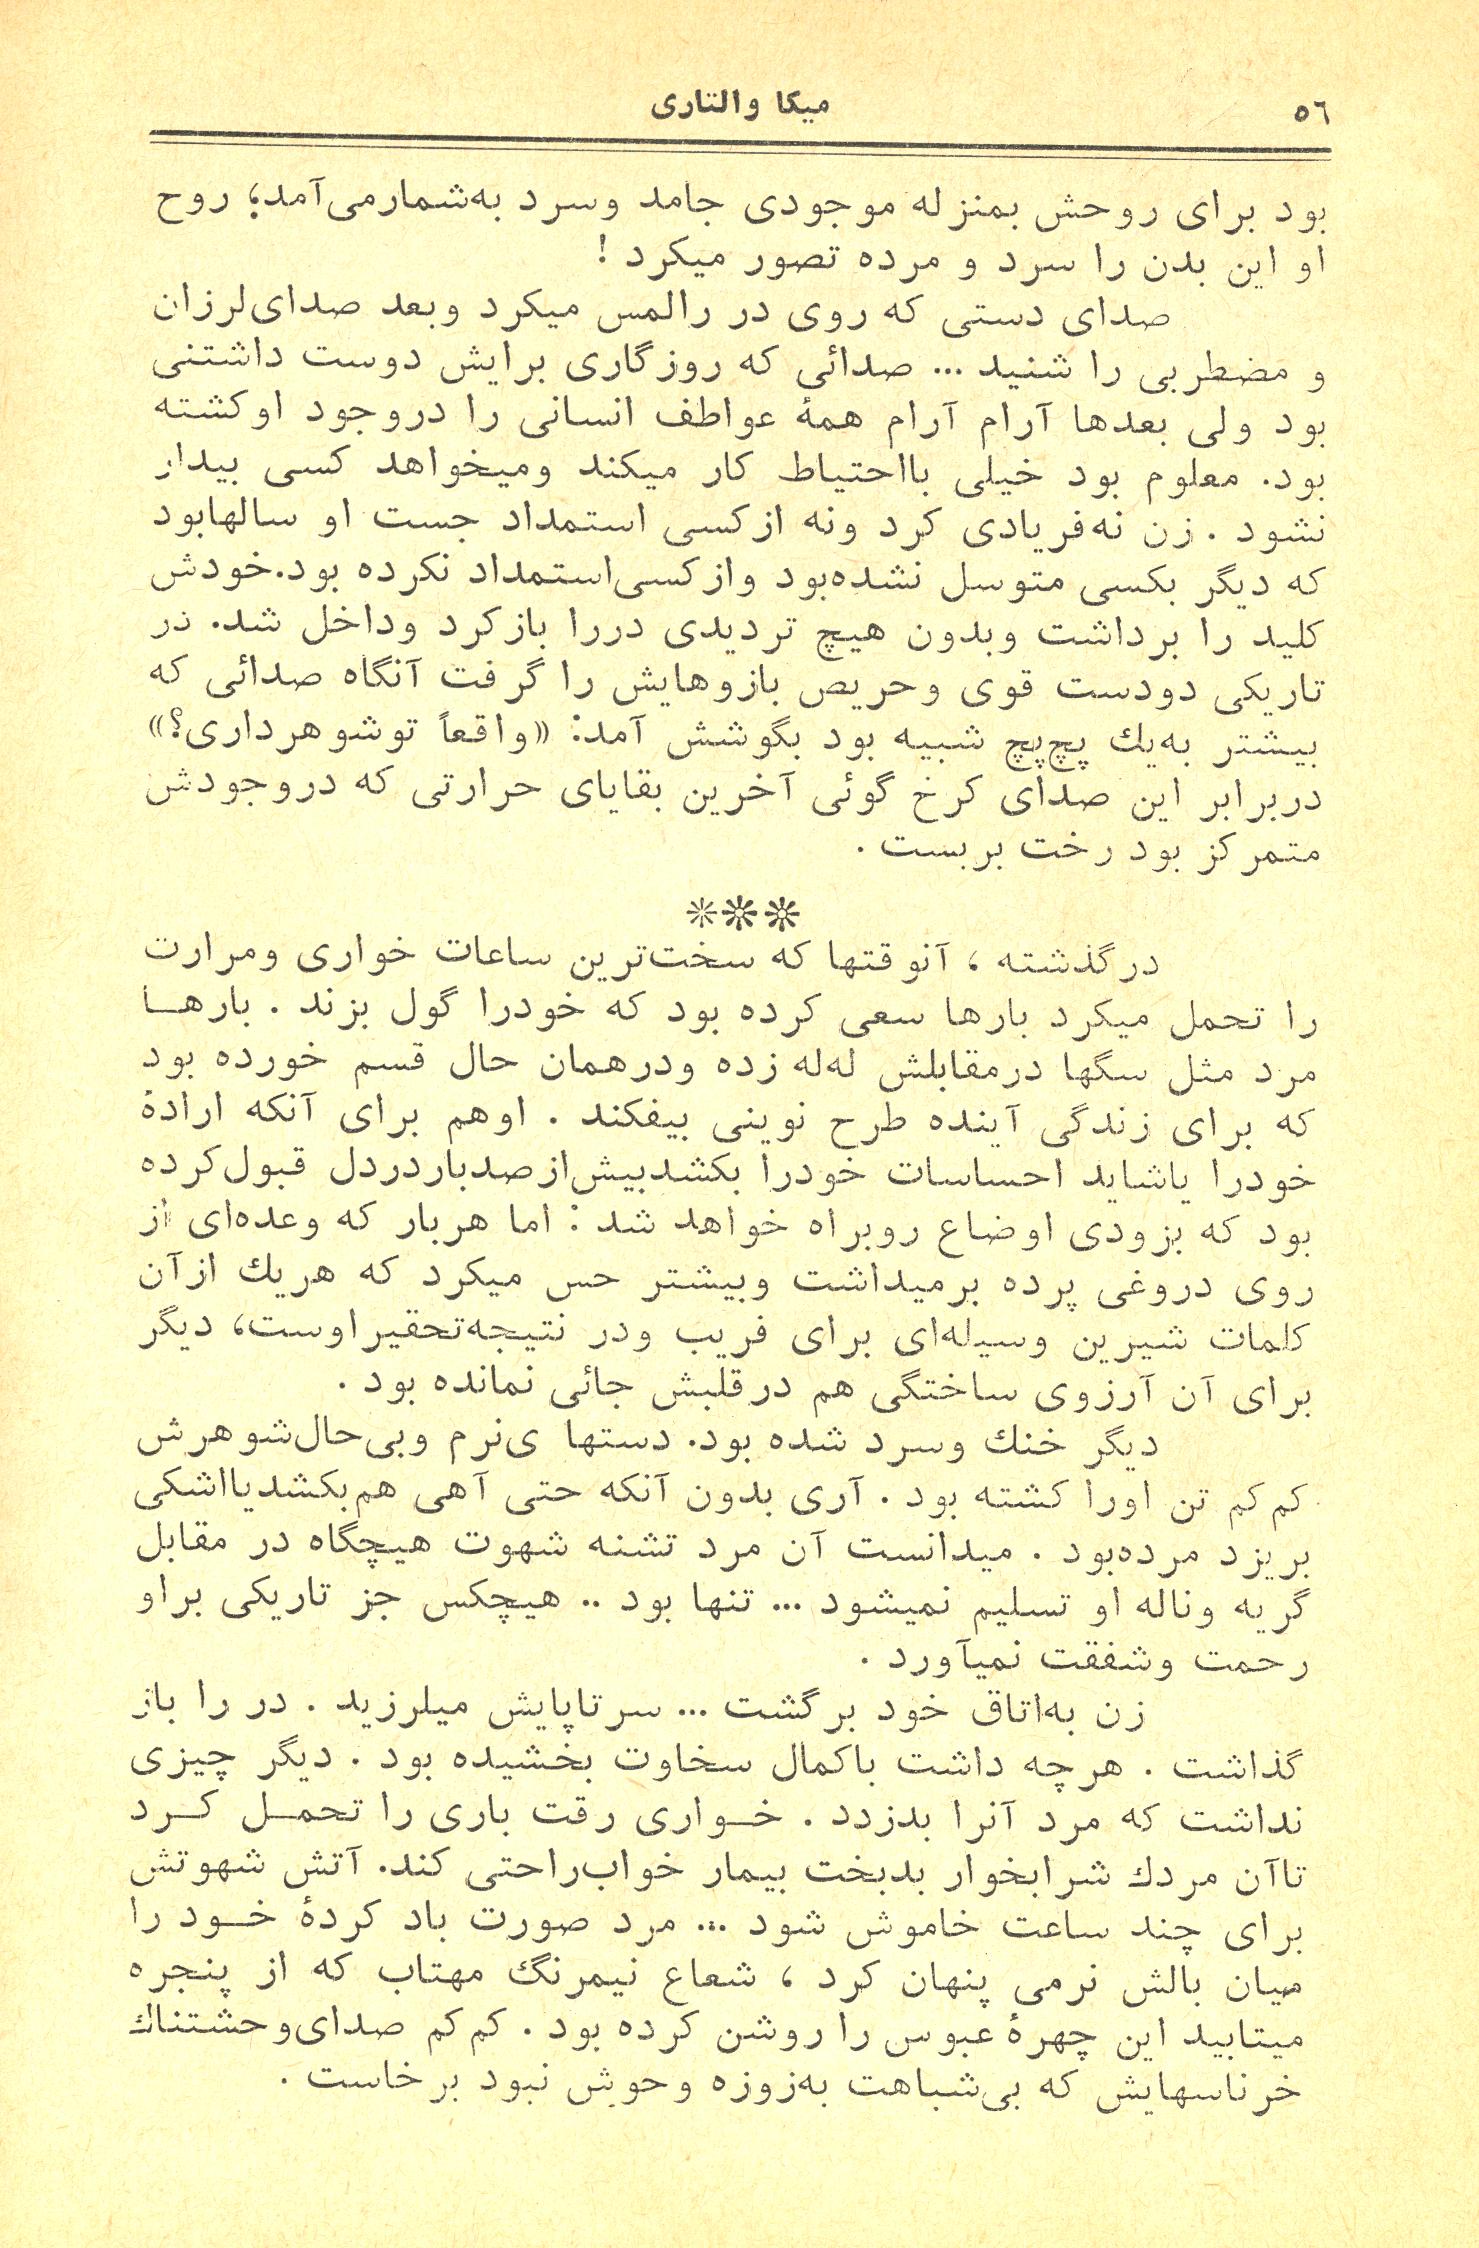 ٥٦
میکا والتاری
بود برای روحش بمنزله موجودی جامد وسرد به‌شمارمی‌آمد؛ روح
او این بدن را سرد و مرده تصور میکرد !
صدای دستی که روی در رالمس میکرد وبعد صدای‌لرزان
و مضطربی را شنید ... صدائی که روزگاری برایش دوست داشتنی
بود ولی بعدها آرام آرام همهٔ عواطف انسانی را دروجود اوکشته
بود. معلوم بود خیلی بااحتیاط کار میکند ومیخواهد کسی بیدار
نشود . زن نه‌فریادی کرد ونه ازکسی استمداد جست او سالهابود
که دیگر بکسی متوسل نشده‌بود وازکسی‌استمداد نکرده بود.خودش
کلید را برداشت وبدون هیچ تردیدی دررا بازکرد وداخل شد. در
تاریکی دودست قوی وحریص بازوهایش را گرفت آنگاه صدائی که
بیشتر به‌یك پچ‌پچ شبیه بود بگوشش آمد: «واقعاً توشوهرداری؟»
دربرابر این صدای کرخ گوئی آخرین بقایای حرارتی که دروجودش
متمرکز بود رخت بربست .
***
درگذشته ، آنوقتها که سخت‌ترین ساعات خواری ومرارت
را تحمل میکرد بارها سعی کرده بود که خودرا گول بزند . بارهـا
مرد مثل سگها درمقابلش له‌له زده ودرهمان حال قسم خورده بود
که برای زندگی آینده طرح نوینی بیفکند . اوهم برای آنکه ارادهٔ
خودرا یاشاید احساسات خودرا بکشدبیش‌ازصدباردردل قبول‌کرده
بود که بزودی اوضاع روبراه خواهد شد : اما هربار که وعده‌ای از
روی دروغی پرده برمیداشت وبیشتر حس میکرد که هریك ازآن
کلمات شیرین وسیله‌ای برای فریب ودر نتیجه‌تحقیراوست، دیگر
برای آن آرزوی ساختگی هم درقلبش جائی نمانده بود .
دیگر خنك وسرد شده بود. دستها ی‌نرم وبی‌حال‌شوهرش
کم‌کم تن اورا کشته بود . آری بدون آنکه حتی آهی هم‌بکشدیااشکی
بریزد مرده‌بود . میدانست آن مرد تشنه شهوت هیچگاه در مقابل
گریه وناله او تسلیم نمیشود ... تنها بود .. هیچکس جز تاریکی براو
رحمت وشفقت نمیآورد .
زن به‌اتاق خود برگشت ... سرتاپایش میلرزید . در را باز
گذاشت . هرچه داشت باکمال سخاوت بخشیده بود . دیگر چیزی
نداشت که مرد آنرا بدزدد . خـواری رقت باری را تحمـل کـرد
تاآن مردك شرابخوار بدبخت بیمار خواب‌راحتی کند. آتش شهوتش
برای چند ساعت خاموش شود ... مرد صورت باد کردهٔ خـود را
میان بالش نرمی پنهان کرد ، شعاع نیمرنگ مهتاب که از پنجره
میتابید این چهرهٔ عبوس را روشن کرده بود . کم‌کم صدای‌وحشتناك
خرناسهایش که بی‌شباهت به‌زوزه وحوش نبود برخاست .